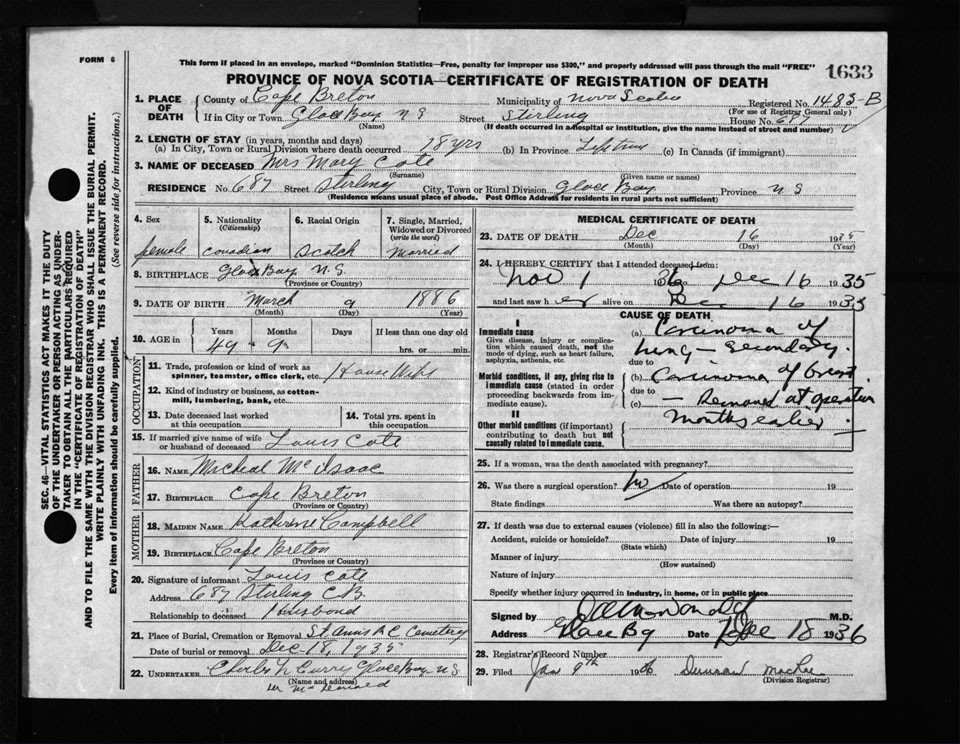 FORM 6
This form if placed in an envelope, marked "Dominion Statistics—Free, penalty for improper use $300," and properly addressed will pass through the mail "FREE"
PROVINCE OF NOVA SCOTIA—CERTIFICATE OF REGISTRATION OF DEATH
1633
1. PLACE OF DEATH { County of Cape Breton Municipality of Nova Scotia Registered No. 1483-B
(For use of Registrar General only)
If in City or Town Glace Bay N S Street Sterling House No. 687
(Name) (If death occurred in a hospital or institution, give the name instead of street and number)
2. LENGTH OF STAY (in years, months and days)
(a) In City, Town or Rural Division where death occurred 18 yrs (b) In Province Lifetime (c) In Canada (if immigrant)
3. NAME OF DECEASED Mrs Mary Cote
(Surname) (Given name or names)
RESIDENCE No. 687 Street Sterling City, Town or Rural Division Glace Bay Province N S
(Residence means usual place of abode. Post Office Address for residents in rural parts not sufficient)
4. Sex
female
5. Nationality
(Citizenship)
Canadian
6. Racial Origin
Scotch
7. Single, Married, Widowed or Divorced
(write the word)
Married
8. BIRTHPLACE Glace Bay N.S.
(Province or Country)
9. DATE OF BIRTH March 9 1886
(Month) (Day) (Year)
10. AGE in Years Months Days If less than one day old
49 9 hrs. or min.
OCCUPATION
11. Trade, profession or kind of work as spinner, teamster, office clerk, etc. House Wife
12. Kind of industry or business, as cotton-mill, lumbering, bank, etc.
13. Date deceased last worked at this occupation
14. Total yrs. spent in this occupation
15. If married give name of wife or husband of deceased Louis Cote
FATHER
16. NAME Micheal McIsaac
17. BIRTHPLACE Cape Breton
(Province or Country)
MOTHER
18. MAIDEN NAME Katherine Campbell
19. BIRTHPLACE Cape Breton
(Province or Country)
20. Signature of informant Louis Cote
Address 687 Sterling C.B.
Relationship to deceased Husband
21. Place of Burial, Cremation or Removal St Anns R C Cemetery
Date of burial or removal Dec 18, 1935
22. UNDERTAKER Charles N Curry Glace Bay N S
(Name and address)
per McDonald
MEDICAL CERTIFICATE OF DEATH
23. DATE OF DEATH Dec 16 1935
(Month) (Day) (Year)
24. I HEREBY CERTIFY that I attended deceased from:
Nov 1 1936 to Dec 16 1935
and last saw her alive on Dec 16 1935
CAUSE OF DEATH
I
Immediate cause
Give disease, injury or complication which caused death, not the mode of dying, such as heart failure, asphyxia, asthenia, etc.
(a) Carcinoma of
lung — secondary.
due to
Morbid conditions, if any, giving rise to immediate cause (stated in order proceeding backwards from immediate cause).
(b) Carcinoma of breast.
due to
(c) — Removed at operation
II
Other morbid conditions (if important) contributing to death but not causally related to immediate cause.
months earlier.
25. If a woman, was the death associated with pregnancy?
26. Was there a surgical operation? No Date of operation 19
State findings Was there an autopsy?
27. If death was due to external causes (violence) fill in also the following:—
Accident, suicide or homicide? Date of injury 19
(State which)
Manner of injury
(How sustained)
Nature of injury
Specify whether injury occurred in Industry, in home, or in public place
Signed by M.D.
Address Glace Bay Date Dec 18 1936
28. Registrar's Record Number
29. Filed Jan 9th 1936 Duncan
(Division Registrar)
SEC. 46—VITAL STATISTICS ACT MAKES IT THE DUTY
OF THE UNDERTAKER OR PERSON ACTING AS UNDER-
TAKER TO OBTAIN ALL THE PARTICULARS REQUIRED
IN THE "CERTIFICATE OF REGISTRATION OF DEATH"
AND TO FILE THE SAME WITH THE DIVISION REGISTRAR WHO SHALL ISSUE THE BURIAL PERMIT.
WRITE PLAINLY WITH UNFADING INK. THIS IS A PERMANENT RECORD.
Every item of information should be carefully supplied. (See reverse side for instructions.)